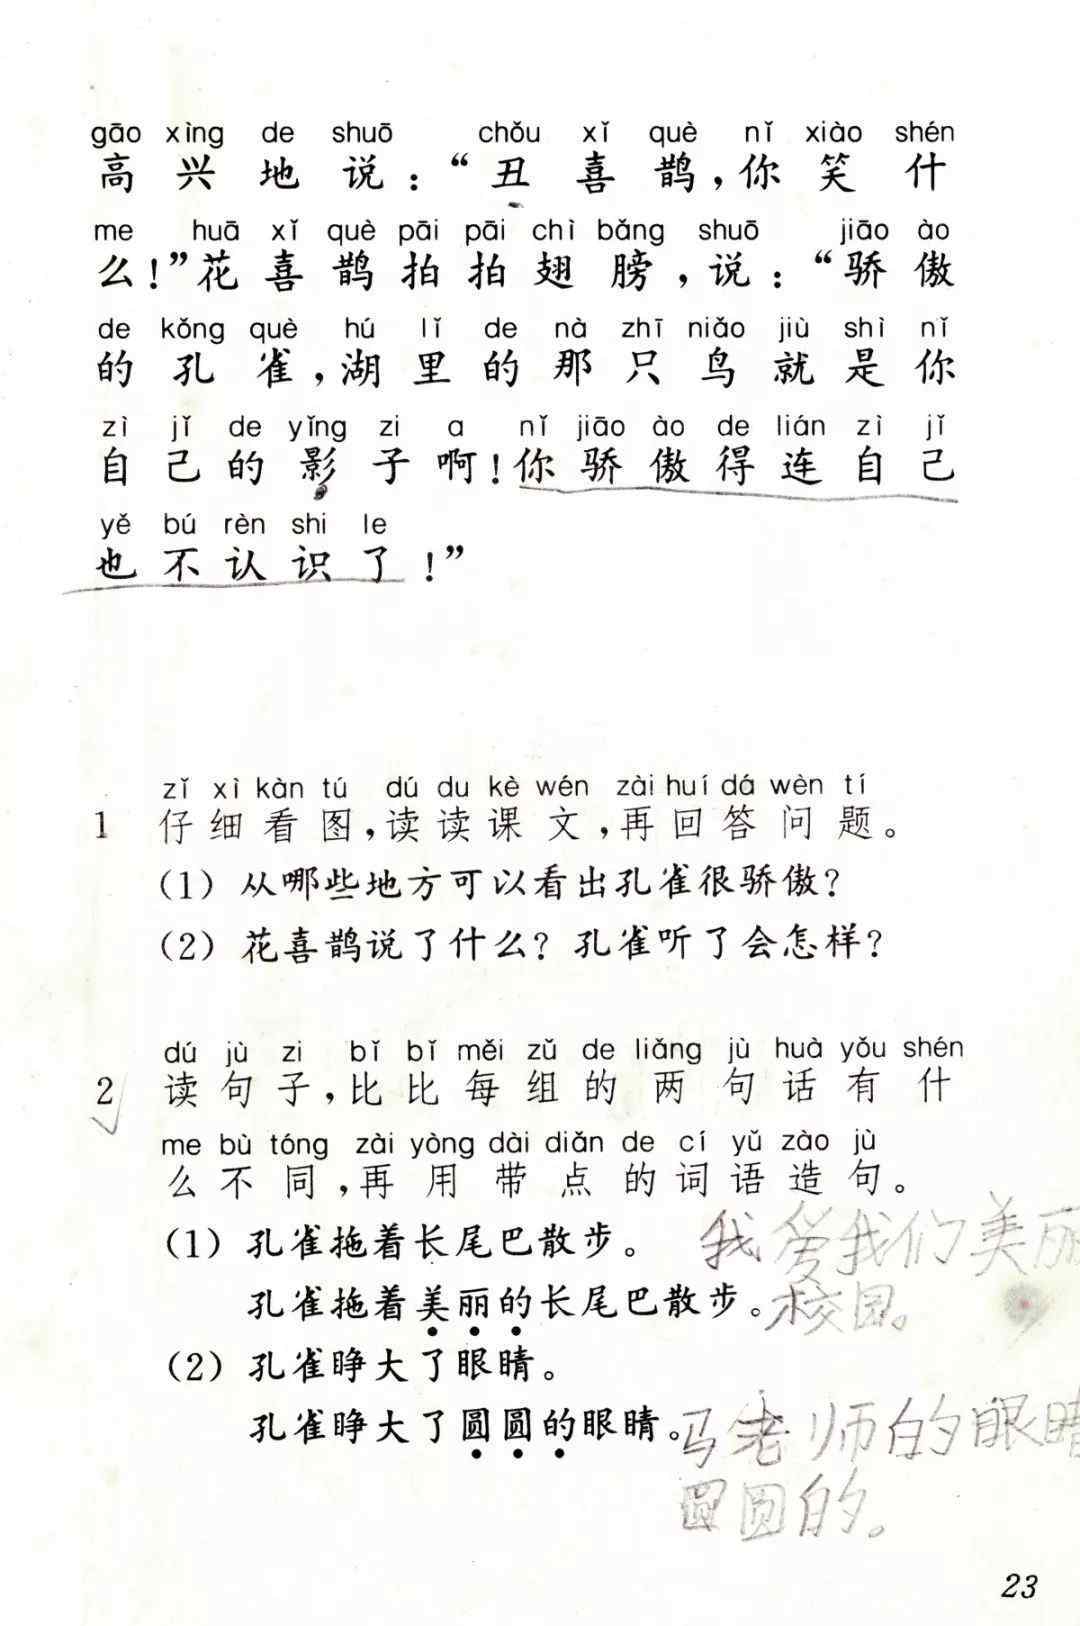 gāo xìng de shuō chǒu xǐ què nǐ xiào shén
高兴地说：“丑喜鹊，你笑什
me huā xǐ què pāi pāi chì bǎng shuō jiāo ào
么！”花喜鹊拍拍翅膀，说：“骄傲
de kǒng què hú lǐ de nà zhī niǎo jiù shì nǐ
的孔雀，湖里的那只鸟就是你
zì jǐ de yǐng zi a nǐ jiāo ào de lián zì jǐ
自己的影子啊！你骄傲得连自己
yě bú rèn shi le
也不认识了！”
zǐ xì kàn tú dú du kè wén zài huí dá wèn tí
1 仔细看图，读读课文，再回答问题。
（1）从哪些地方可以看出孔雀很骄傲？
（2）花喜鹊说了什么？孔雀听了会怎样？
dú jù zi bǐ bǐ měi zǔ de liǎng jù huà yǒu shén
2 读句子，比比每组的两句话有什
me bù tóng zài yòng dài diǎn de cí yǔ zào jù
么不同，再用带点的词语造句。
（1）孔雀拖着长尾巴散步。 我爱我们美丽
孔雀拖着美丽的长尾巴散步。校园。
（2）孔雀睁大了眼睛。
孔雀睁大了圆圆的眼睛。马老师的眼睛
圆圆的。
23